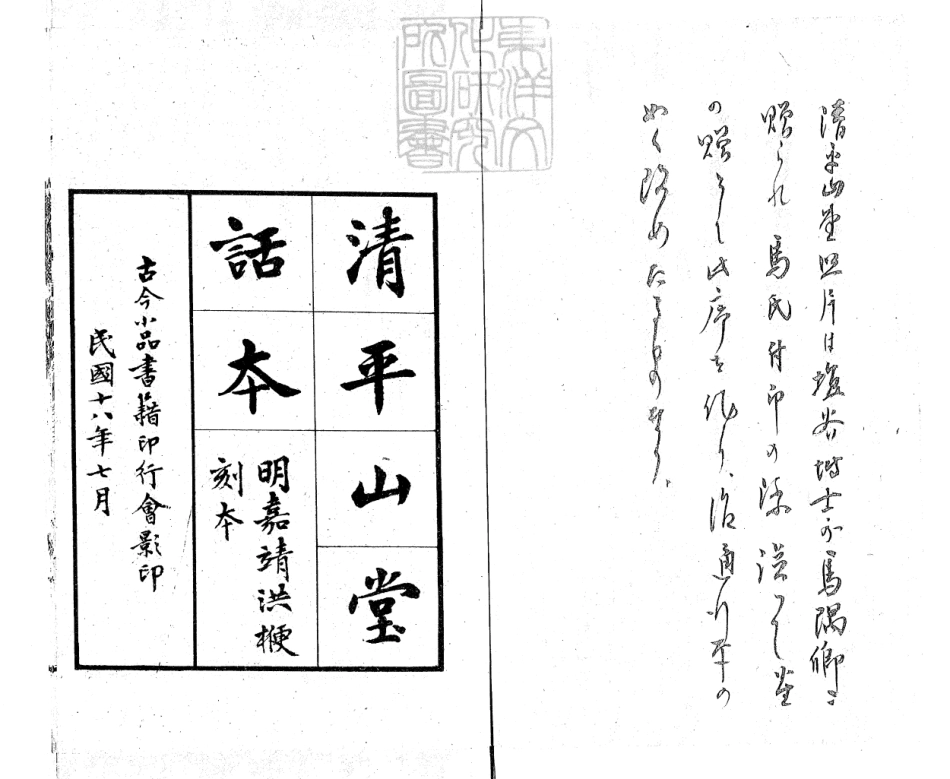 清平山堂照片は塩谷博士が馬隅卿に
贈られ馬氏付印の際
の贈りし此序を作り、後通行本の
如く改めたるものなり、
東洋文
化研究
所圖書
清平山堂
話本
明嘉靖洪楩
刻本
古今小品書籍印行會影印
民國十八年七月